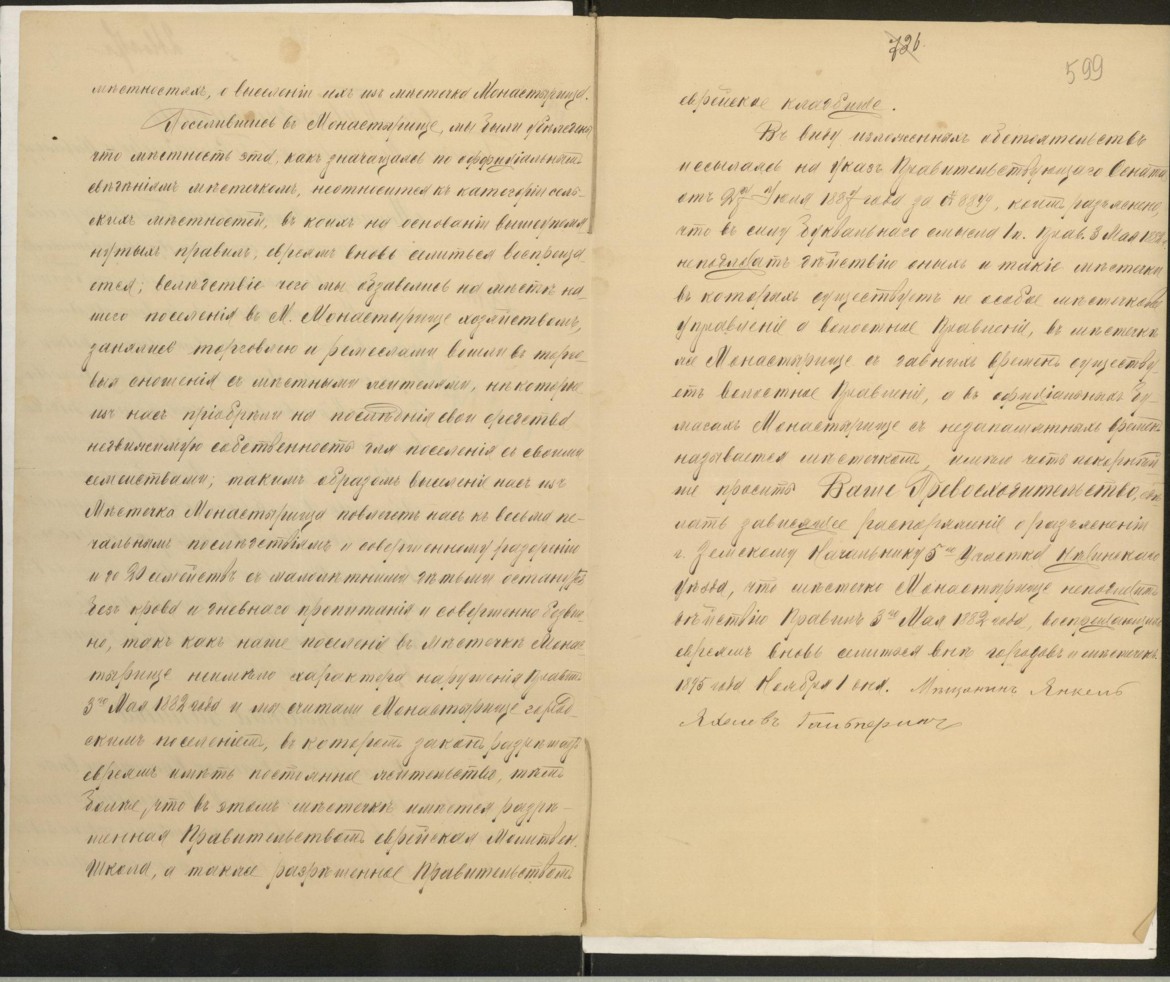 мѣстностяхъ, о выселеніи ихъ изъ мѣстечка Монастырища.
Поселившись въ Монастырище, мы были убѣждены
что мѣстность эта, какъ значащаяся по оффиціальнымъ
свѣдѣніямъ мѣстечкомъ, неотносится къ категоріи сель-
скихъ мѣстностей, въ коихъ на основаніи вышеупомя
нутыхъ правилъ, евреямъ вновь селиться воспреща
ется; вслѣдствіе чего мы обзавелись на мѣстѣ на-
шего поселенія въ М. Монастырище хозяйствомъ,
занялись торговлею и ремеслами вошли въ торго-
выя сношенія съ мѣстными жителями, нѣкоторые
изъ насъ пріобрѣли на послѣднія свои средства
недвижимую собственность для поселенія съ своими
семействами; такимъ образомъ выселеніе насъ изъ
Мѣстечка Монастырища повлечетъ насъ къ весьма пе-
чальнымъ послѣдствіямъ и совершенному разоренію
и до 20 семействъ съ малолѣтними дѣтьми останутся
безъ крова и дневнаго пропитанія и совершенно безвин
но, такъ какъ наше поселеніе въ мѣстечкѣ Монас
тырище неимѣло характера нарушенія Правилъ
3го Мая 1882 года и мы считали Монастырище город-
скимъ поселеніемъ, въ которомъ законъ разрѣшаетъ
евреямъ имѣть постоянное жительство, тѣмъ
болѣе, что въ этомъ мѣстечкѣ имѣется разрѣ-
шенная Правительствомъ еврейская Молитвен.
Школа, а также разрѣшенное Правительствомъ
726.
599
еврейское кладбище.
Въ виду изложенныхъ обстоятельствъ
и ссылаясь на указъ Правительствующаго Сената
отъ 27го Іюля 1887 года за № 8879, коимъ разъяснено,
что въ силу буквальнаго смысла 1 п. Прав. 3 Мая 1882 г.
неподлежатъ дѣйствію оныхъ и такіе мѣстечки
въ которыхъ существуетъ не особое мѣстечковое
управленіе а волостное Правленіе, въ мѣстечкѣ
же Монастырище съ давнихъ временъ существу
етъ Волостное Правленіе, а въ офиціальныхъ бу-
магахъ Монастырище съ незапамятныхъ временъ
называется мѣстечкомъ, имѣю честь покорнѣй
ше просить Ваше Превосходительство, сдѣ
лать зависящее распоряженіе о разъясненіи
г. Земскому Начальнику 5го Участка Нѣжинскаго
Уѣзда, что мѣстечко Монастырище неподлежитъ
дѣйствію Правилъ 3го Мая 1882 года, воспрещающихъ
евреямъ вновь селиться внѣ городовъ и мѣстечекъ
1895 года Ноября 1 дня. Мѣщанинъ Янкель
Гальперинъ